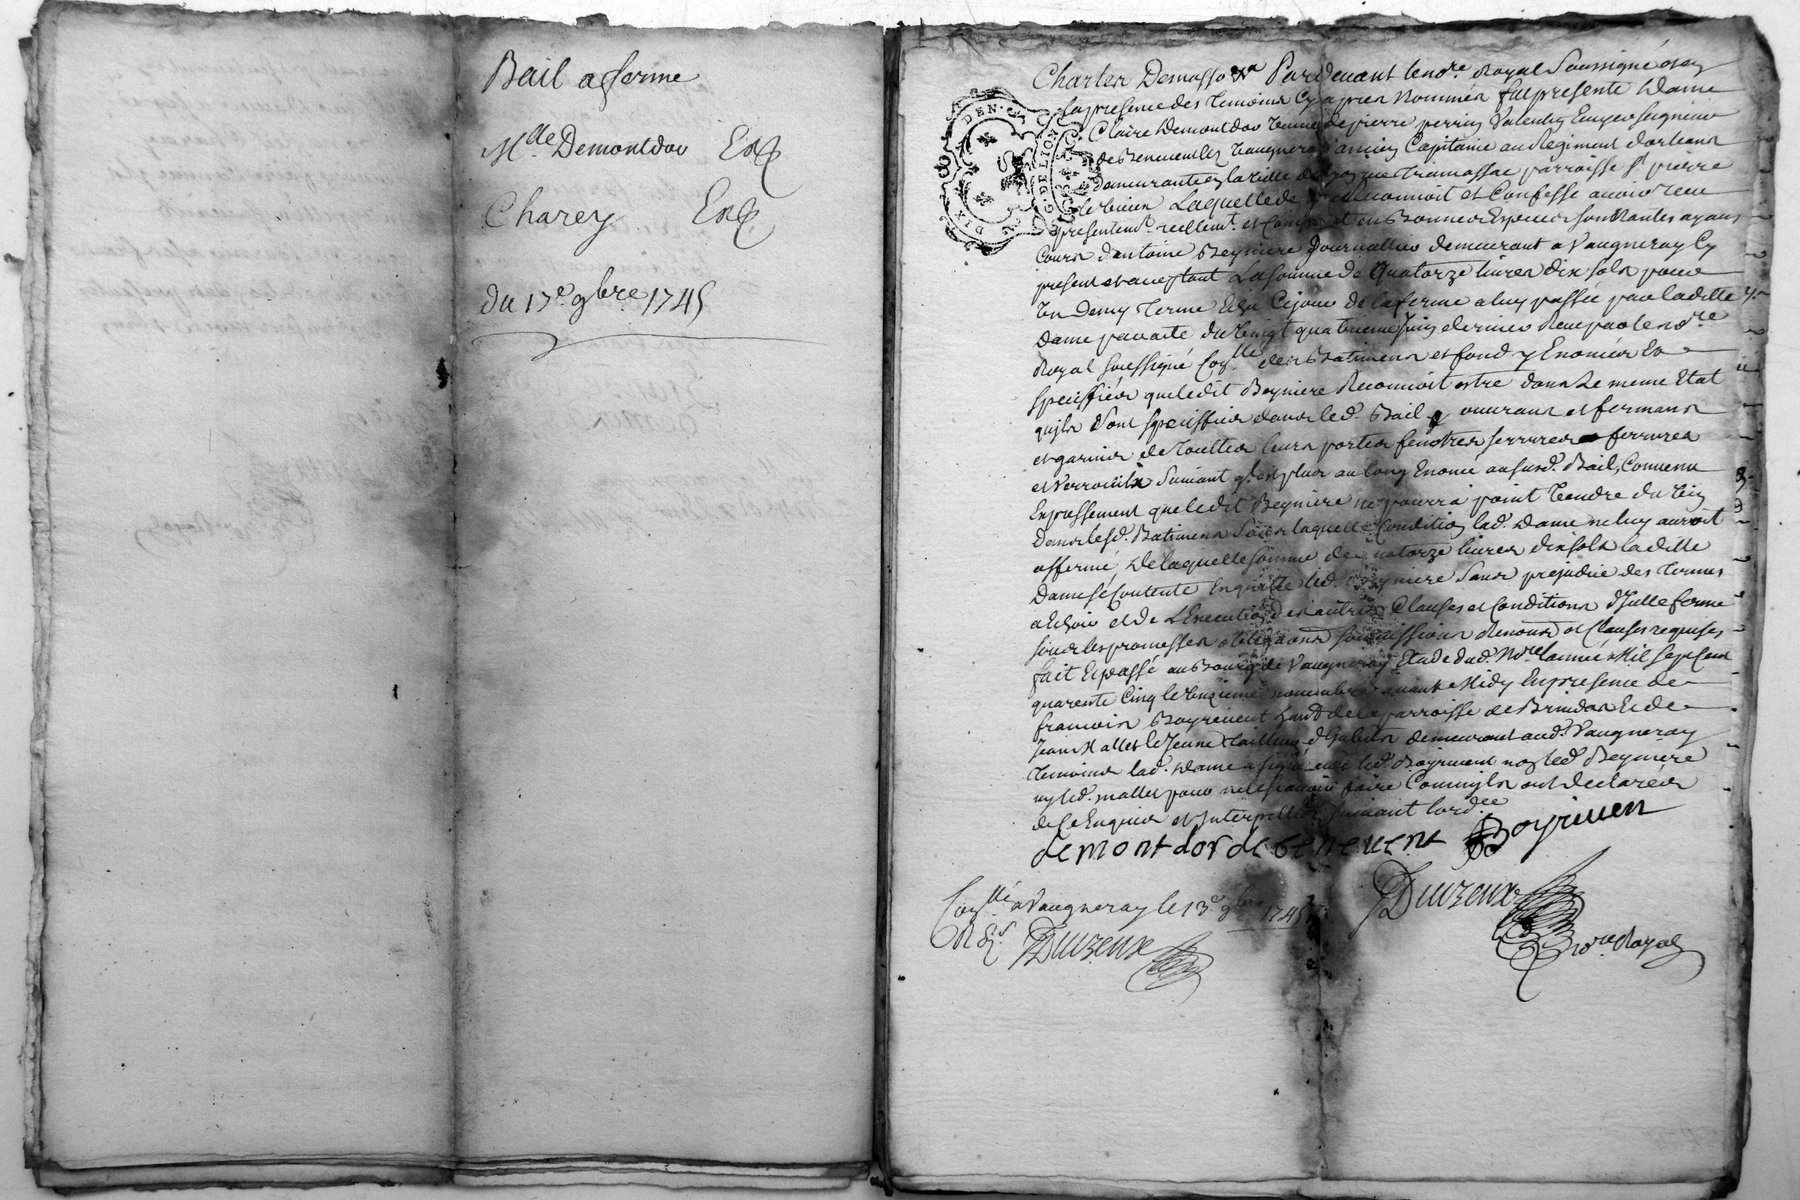 Bail a ferme
Mlle Demontdor Exp
Charey Exp
du 17e 9bre 1745
Pardevant le nore Royal Soussigné et en
la presence des temoins cy apres nommés fut presente Dame
Claire Demontdor femme de pierre perrin Valentin Ecuyer Seigneur
de Benevent ancien Capitaine au Regiment dorleans
demeurante en la ville de rue Tramassac parroisse St pierre
le vieux Laquelle de Reconnoit et Confesse avoir recu
presentemt reellemt et en bonnes Especes sonnantes ayans
Cours dantoine Beyniere Journallier demeurant a Vaugneray Cy
present et acceptant La somme de quatorze livres dix sols pour
un demy terme de la ferme a luy passée par laditte
Dame par acte du vingt quatrieme Juin dernier Recu par le nore
Royal soussigné des Batimens et fond y Enoncés Et
specifiés que ledit Beyniere Reconnoit estre dans le meme Etat
quils sont specifiés dans led. Bail ouvrans et fermans
et garnies de touttes leurs portes fenetres serrures ferrures
et verrouils suivant quil est plus au long Enoncé au susd. Bail, Convenu
Expressement que ledit Beyniere ne pourra point vendre du vin
dans lesd. Batimens sans laquelle Condition lad. Dame ne luy auroit
affermé De laquelle somme de quatorze livres dix sols laditte
Dame se Contente En quitte led. Beyniere sans prejudice des termes
a Echoir et de L'Execution des autres Clauses et Conditions
sous les promesses obligaons soumissions Renonons et Clauses requises
fait Et passé au Bourg de Vaugneray Etude dud. Nore l'année Mil sept cent
quarente Cinq le novembre avant Midy En presence de
francois Boyrivent de la parroisse de Brindas Et de
Jean Mallet le Jeune tailleur d'habits demeurant aud. Vaugneray
temoins lad. Dame a signé avec led. Boyrivent non led. Beyniere
ny led. mallet pour ne le scavoir faire Comme ils ont declarés
de Ce Enquis et Interpellés suivant lordce
demontdor de benevent Boyriven
Duvzeux
nore Royal
Conllé a Vaugneray le 13e 9bre 1745
Duvzeux
G. DE LION